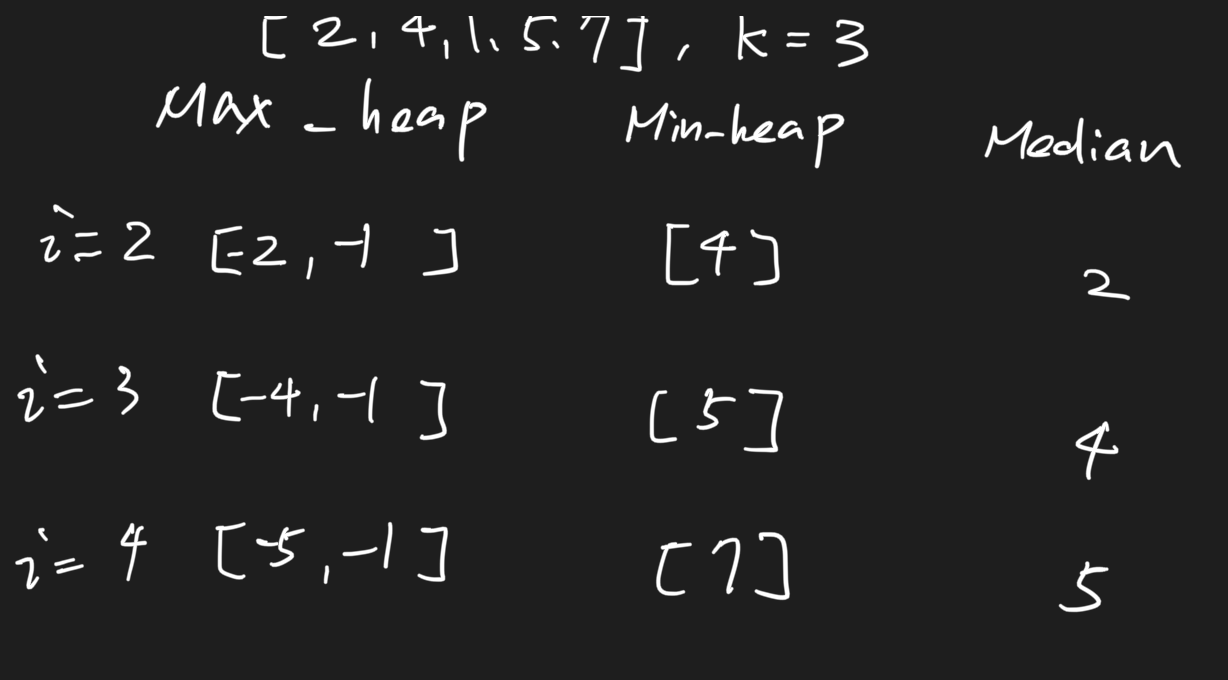 [2, 4, 1, 5, 7], k = 3
Max-heap Min-heap Median
i = 2 [-2, -1 ] [4] 2
i = 3 [-4, -1 ] [5] 4
i = 4 [-5, -1] [7] 5